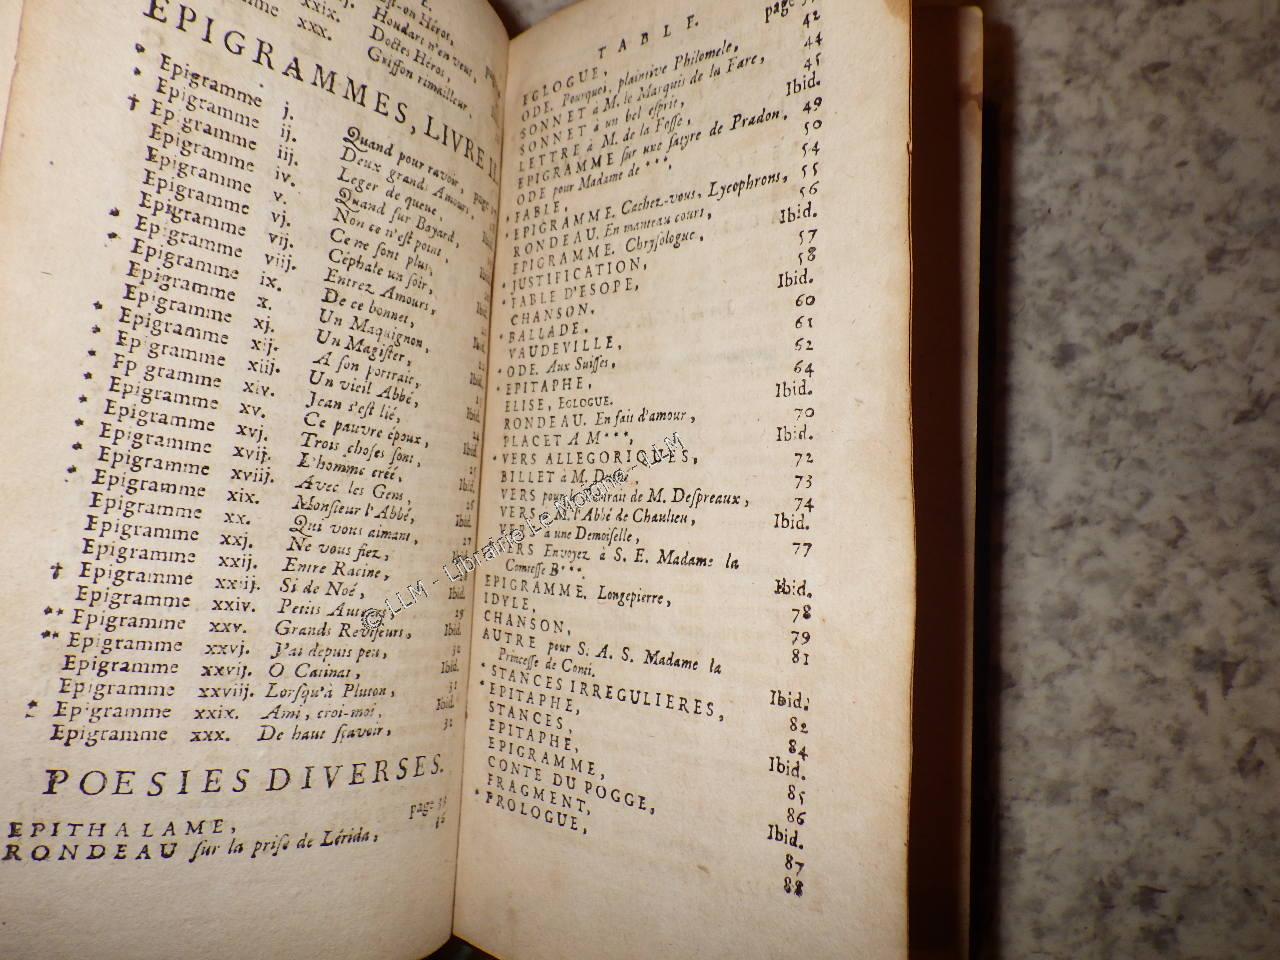 xxix. Houdart n'en veut,
xxx. Doctes Héros,
Griffon rimailleur
EPIGRAMMES, LIVRE II
* Epigramme j. Quand pour ravoir,
Epigramme ij. Deux grands Amours,
† Epigramme iij. Leger de queue,
Epigramme iv. Quand sur Bayard,
Epigramme v. Non ce n'est point,
Epigramme vj. Ce ne sont plus,
Epigramme vij. Céphale un soir,
* Epigramme viij. Entrez Amours,
* Epigramme ix. De ce bonnet,
Epigramme x. Un Maquignon,
Epigramme xj. Un Magister,
* Epigramme xij. A son portrait,
* Epigramme xiij. Un vieil Abbé,
* Epigramme xiv. Jean s'est lié,
* Epigramme xv. Ce pauvre époux,
* Epigramme xvj. Trois choses sont,
* Epigramme xvij. L'homme créé,
* Epigramme xviij. Avec les Gens,
* Epigramme xix. Monsieur l'Abbé,
Epigramme xx. Qui vous aimant,
Epigramme xxj. Ne vous fiez,
Epigramme xxij. Entre Racine,
† Epigramme xxiij. Si de Noé, Ibid.
Epigramme xxiv. Petits Auteurs, 29
** Epigramme xxv. Grands Reviseurs, Ibid.
** Epigramme xxvj. J'ai depuis peu,
Epigramme xxvij. O Catinat, Ibid.
Epigramme xxviij. Lorsqu'à Pluton, 31
* Epigramme xxix. Ami, croi-moi, Ibid.
Epigramme xxx. De haut sçavoir, 32
POESIES DIVERSES.
EPITHALAME, page 33
RONDEAU sur la prise de Lérida,
TABLE.
EGLOGUE, page
ODE. Pourquoi, plaintive Philomele, 42
SONNET à M. le Marquis de la Fare, 44
SONNET à un bel esprit, 45
LETTRE à M. de la Fosse, Ibid.
EPIGRAMME sur une satyre de Pradon. 49
ODE pour Madame de ***, 50
* FABLE, 54
* EPIGRAMME. Cachez-vous, Lycophrons, 55
RONDEAU. En manteau court, 56
EPIGRAMME. Chrysologue, Ibid.
* JUSTIFICATION, 57
* FABLE D'ESOPE, 58
CHANSON. Ibid.
* BALLADE. 60
VAUDEVILLE, 61
* ODE. Aux Suisses, 62
* EPITAPHE, 64
ELISE, EGLOGUE. Ibid.
RONDEAU. En fait d'amour, 70
PLACET A M***, Ibid.
* VERS ALLEGORIQUES, 72
BILLET à M. 73
VERS pour le portrait de M. Despreaux, 74
VERS à M. l'Abbé de Chaulieu, Ibid.
VERS à une Demoiselle, 77
VERS Envoyez à S. E. Madame la
Comtesse B***. Ibid.
EPIGRAMME. Longepierre, 78
IDYLE, 79
CHANSON, 81
AUTRE pour S. A. S. Madame la
Princesse de Conti. Ibid.
* STANCES IRREGULIERES, 82
* EPITAPHE, 84
STANCES, Ibid.
EPITAPHE, 85
EPIGRAMME, 86
CONTE DU POGGE, Ibid.
FRAGMENT, 87
* PROLOGUE, 88
© LLM - Librairie Le Moigne - LLM